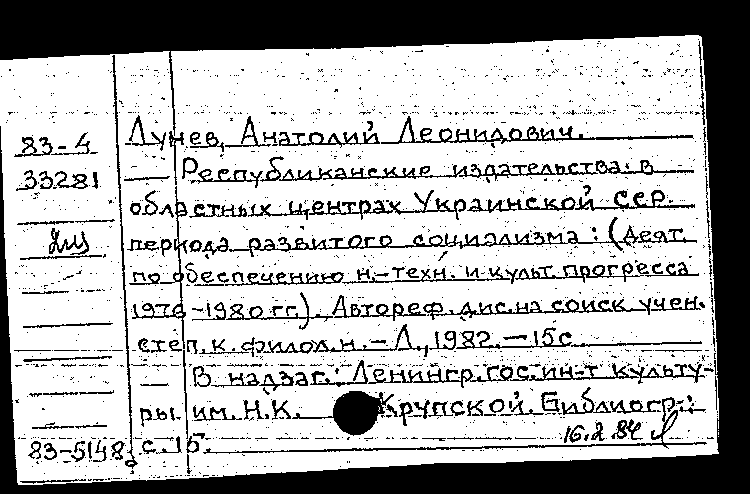 83-4 Лунев, Анатолий Леонидович.
33281 — Республиканские издательства в
областных центрах Украинской ССР
периода развитого социализма: (Деят.
по обеспечению н.-техн. и культ. прогресса
1976-1980 гг.). Автореф. дис. на соиск. учен.
степ. к. филол. н. - Л., 1982. - 15 с.
— В надзаг.: Ленингр. гос. ин-т культу-
ры им. Н.К. Крупской. Библиогр.:
83-5148 с. 15. 16.2.84